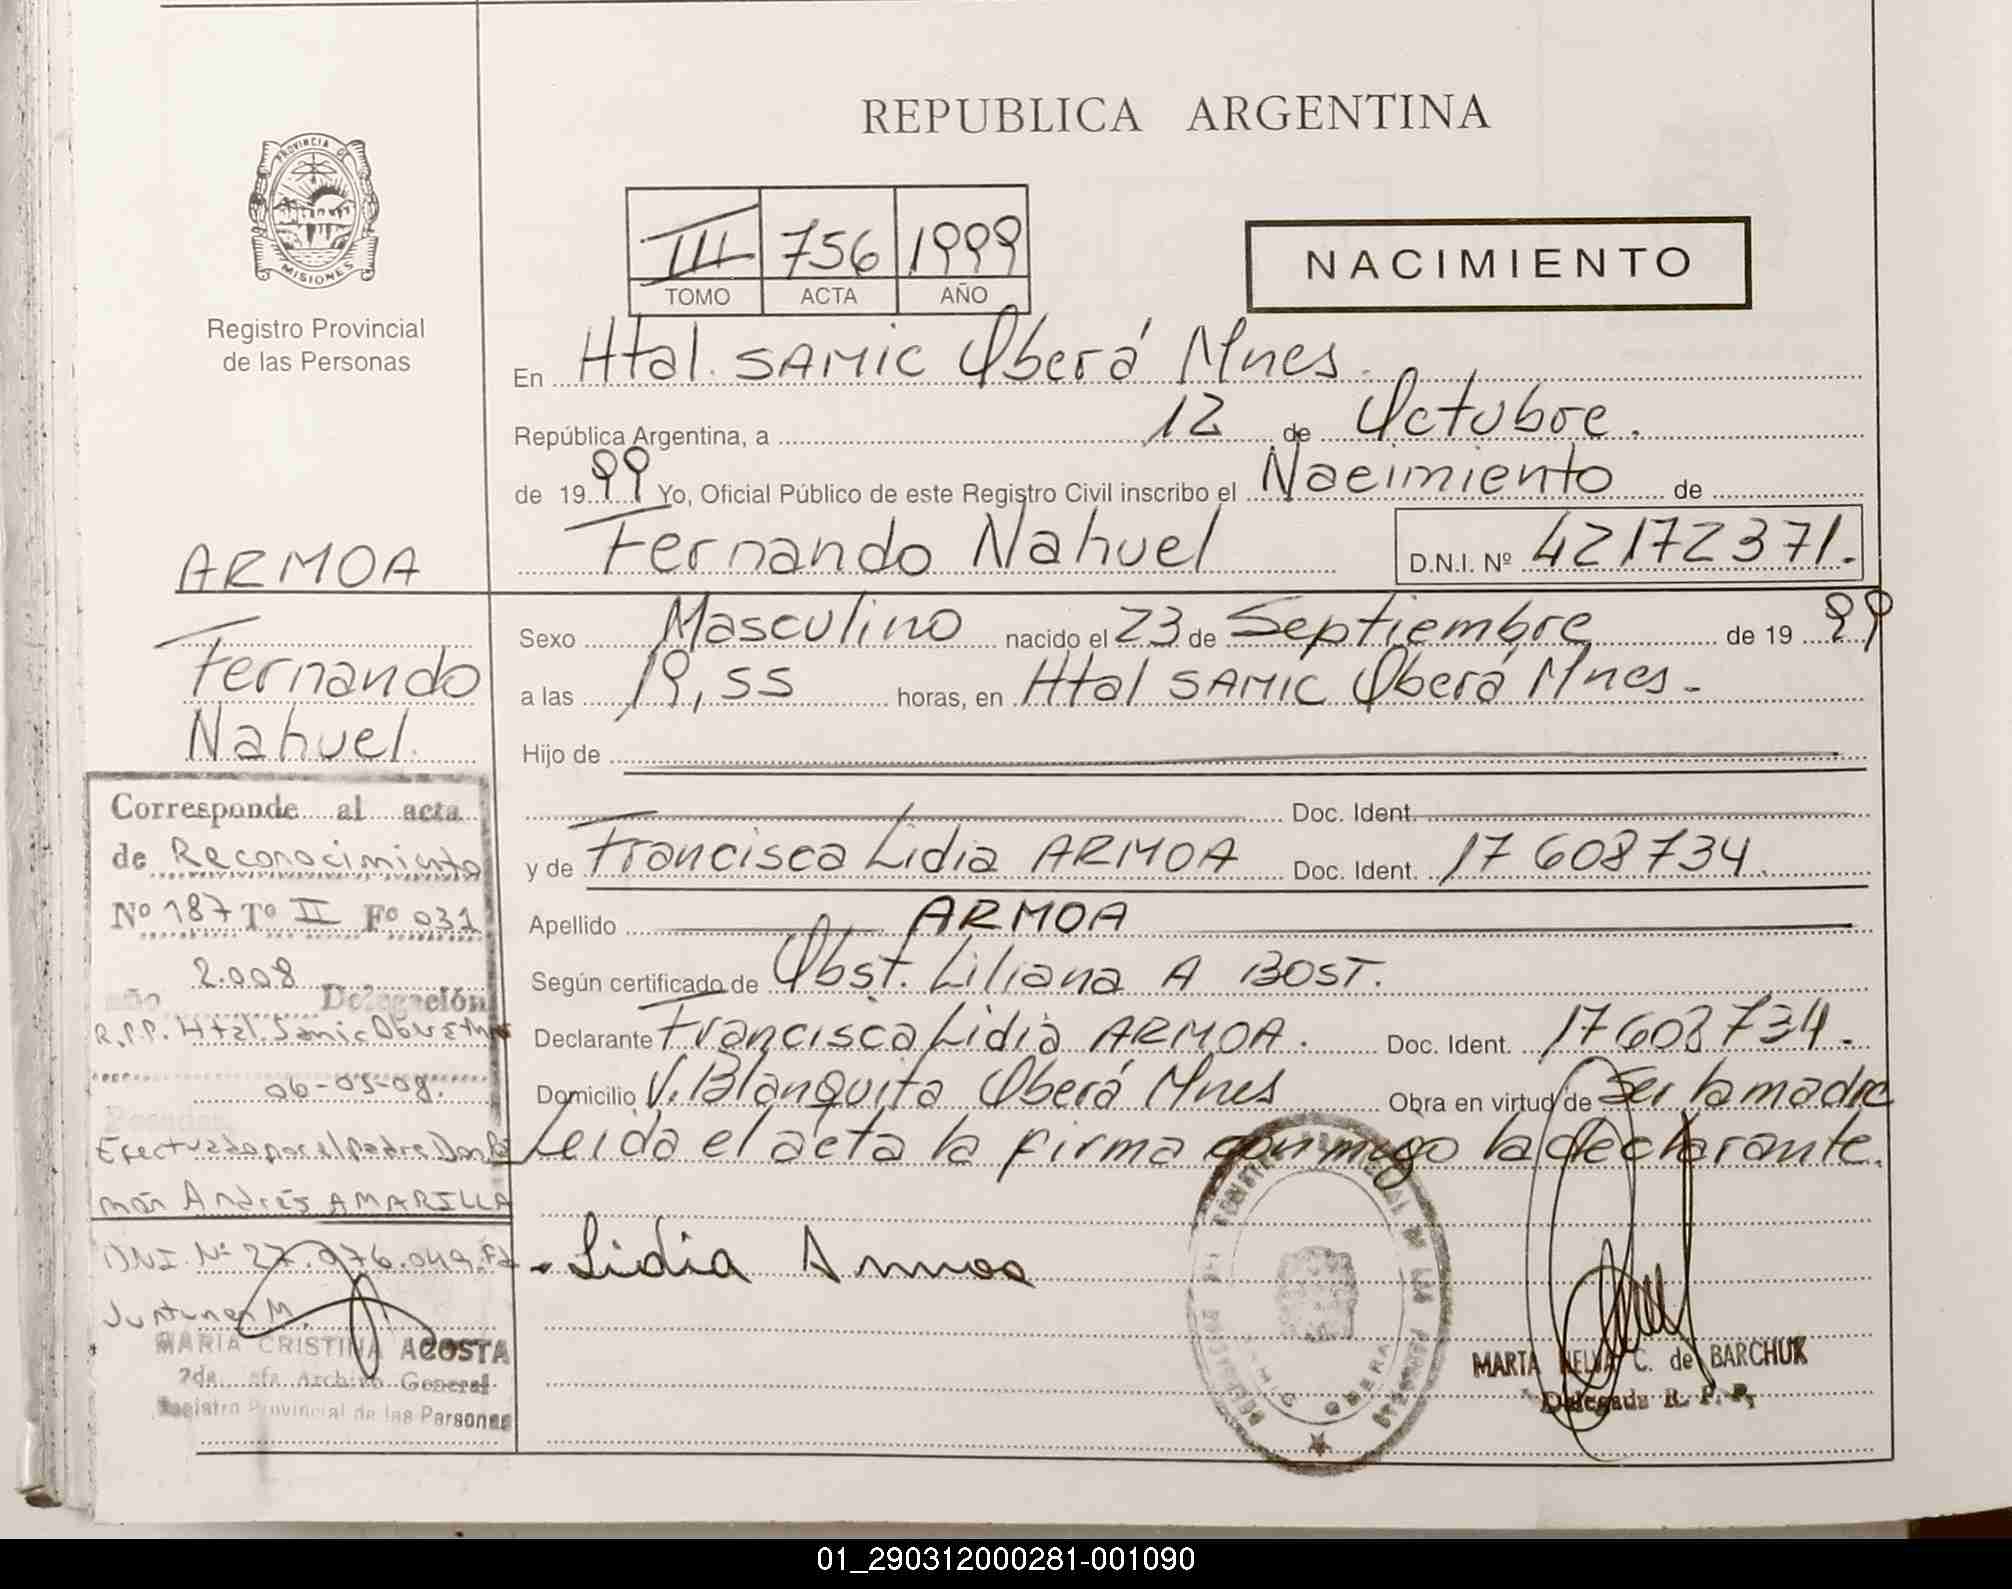 REPUBLICA ARGENTINA
PROVINCIA DE
MISIONES
Registro Provincial
de las Personas
III 756 1999
TOMO ACTA AÑO
NACIMIENTO
En Htal. SAMIC Oberá Mnes.
República Argentina, a 12 de Octubre.
de 1999 Yo, Oficial Público de este Registro Civil inscribo el Nacimiento de
Fernando Nahuel D.N.I. Nº 42172371.
ARMOA
Fernando
Nahuel.
Sexo Masculino nacido el 23 de Septiembre de 1999
a las 19,55 horas, en Htal SAMIC Oberá Mnes.-
Hijo de
Doc. Ident.
y de Francisca Lidia ARMOA Doc. Ident. 17608734.
Apellido ARMOA
Según certificado de Obst. Liliana A BOST.
Declarante Francisca Lidia ARMOA. Doc. Ident. 17608734.
Domicilio V. Blanquita Oberá Mnes Obra en virtud de Ser la madre
Leida el acta la firma conmigo la declarante.
Corresponde al acta
de Reconocimiento
Nº 187 Tº II Fº 031
año 2.008 Delegación
R.P.P. Htal. Samic Oberá
06-05-08.
Efectuado por el padre Don Ra
món Andrés AMARILLA
DNI. Nº 27.076.049.
MARIA CRISTINA ACOSTA
2da. Jefa Archivo General
Registro Provincial de las Personas
Lidia Armoa
OBERA
MARTA HELVA C. de BARCHUK
Delegada R. P. P.
01_290312000281-001090